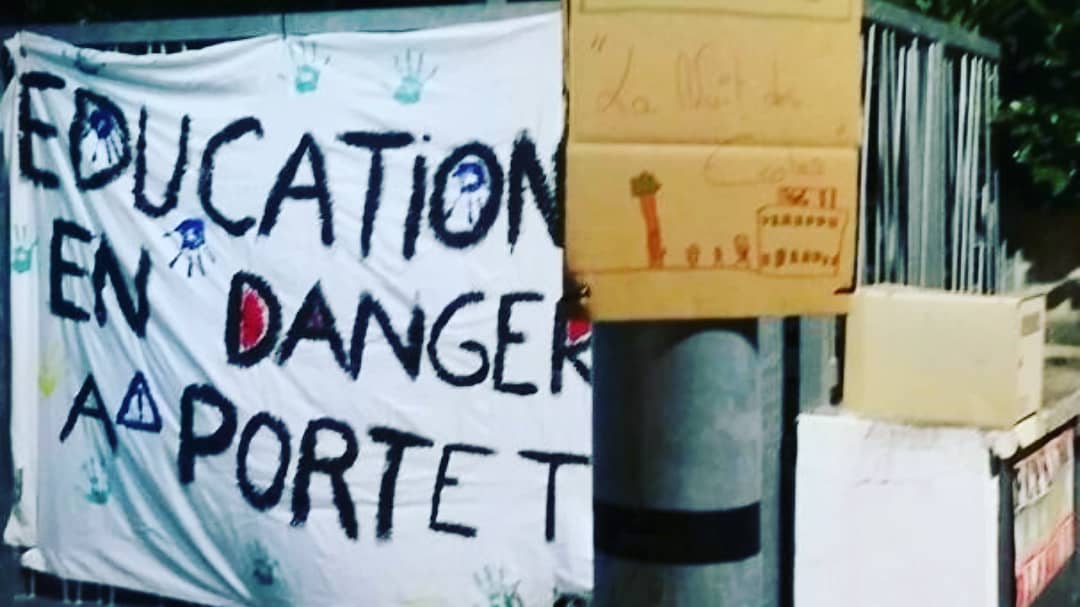 EDUCATION
EN DANGER
A PORTE T
"La Nuit des
Ecoles"